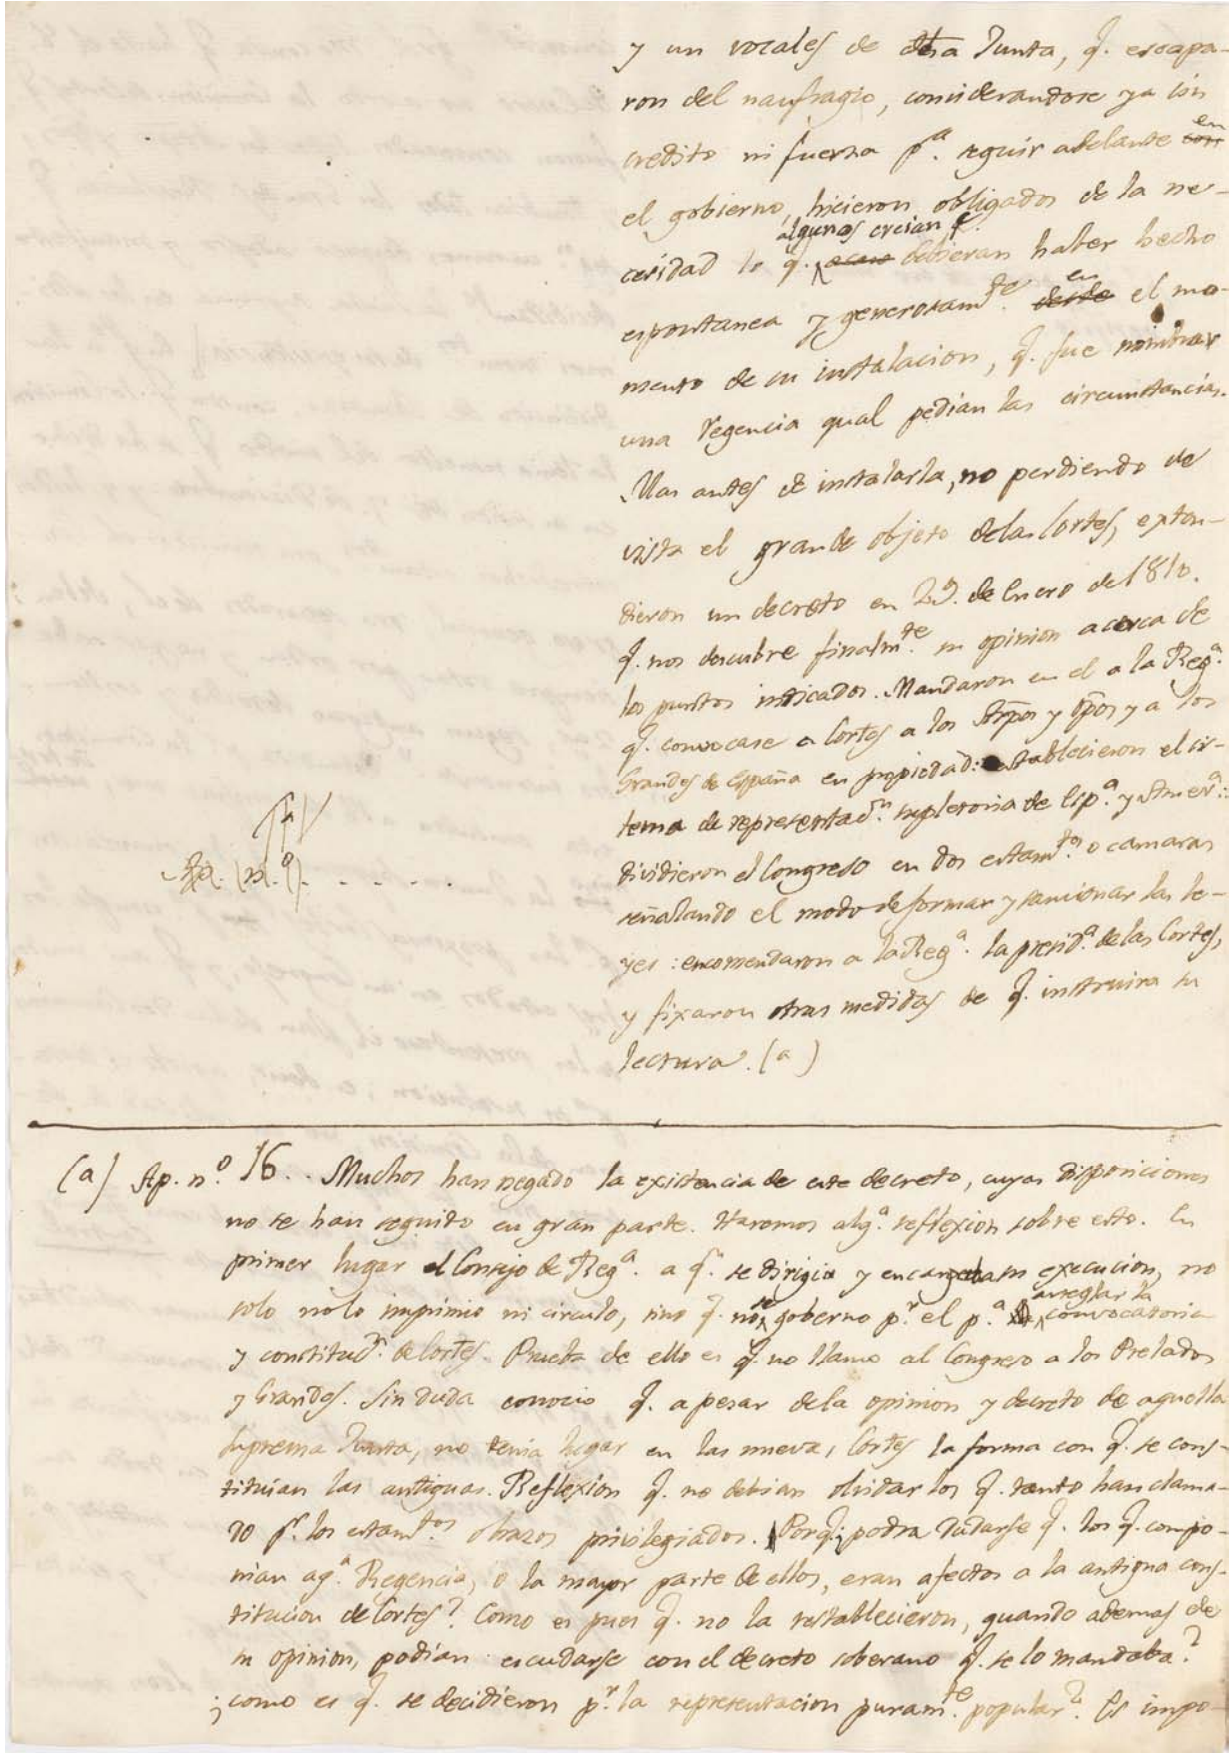 y un vocales de dha Junta, q. escapa-
ron del naufragio, considerandose ya sin
credito ni fuerza p.ª seguir adelante con en
el gobierno, hicieron obligados de la ne-
cesidad lo q. acaso algunas creian q. debieran haber hecho
espontanea y generosam.te desde en el mo-
mento de su instalacion, q. fue nombrar
una Regencia qual pedian las circunstancias.
Mas antes de instalarla, no perdiendo de
vista el grande objeto de las Cortes, exten-
dieron un decreto en 29. de Enero de 1810.
q. nos descubre finalm.te su opinion acerca de
los puntos indicados. Mandaron en el a la Reg.ª
q. convocase a Cortes a los Arpos y Opos y a los
Grandes de España en propiedad: establecieron el sis-
tema de representac.n supletoria de Esp.ª y Amer.ª:
dividieron el Congreso en dos estam.tos o camaras
señalando el modo de formar y sancionar las le-
yes: encomendaron a la Reg.ª la presid.ª de las Cortes,
y fixaron otras medidas de q. instruira su
lectura. (a)
Ap. (n.º). . . . . .
(a) Ap. n.º 16. . Muchos han negado la existencia de este decreto, cuyas disposiciones
no se han seguido en gran parte. Haremos alg.ª reflexion sobre esto. En
primer lugar el Consejo de Reg.ª a q.n se dirigia y encargaba su execucion, no
solo no lo imprimio ni circulo, sino q. no se goberno p.r el p.ª arreglar la convocatoria
y constituc.n de Cortes. Prueba de ello es q. no llamo al Congreso a los Prelados
y Grandes. Sin duda conocio q. a pesar de la opinion y decreto de aquella
Suprema Junta, no tenia lugar en las nuevas Cortes la forma con q. se cons-
tituian las antiguas. Reflexion q. no debian olvidar los q. tanto han clama-
do p.r los estam.tos o brazos privilegiados. Porq. ¿podra dudarse q. los q. compo-
nian aq.ª Regencia, o la mayor parte de ellos, eran afectos a la antigua cons-
titucion de Cortes? Como es pues q. no la restablecieron, quando ademas de
su opinion, podian escudarse con el decreto soberano q. se lo mandaba?
¿como es q. se decidieron p.r la representacion puram.te popular? Es impo-